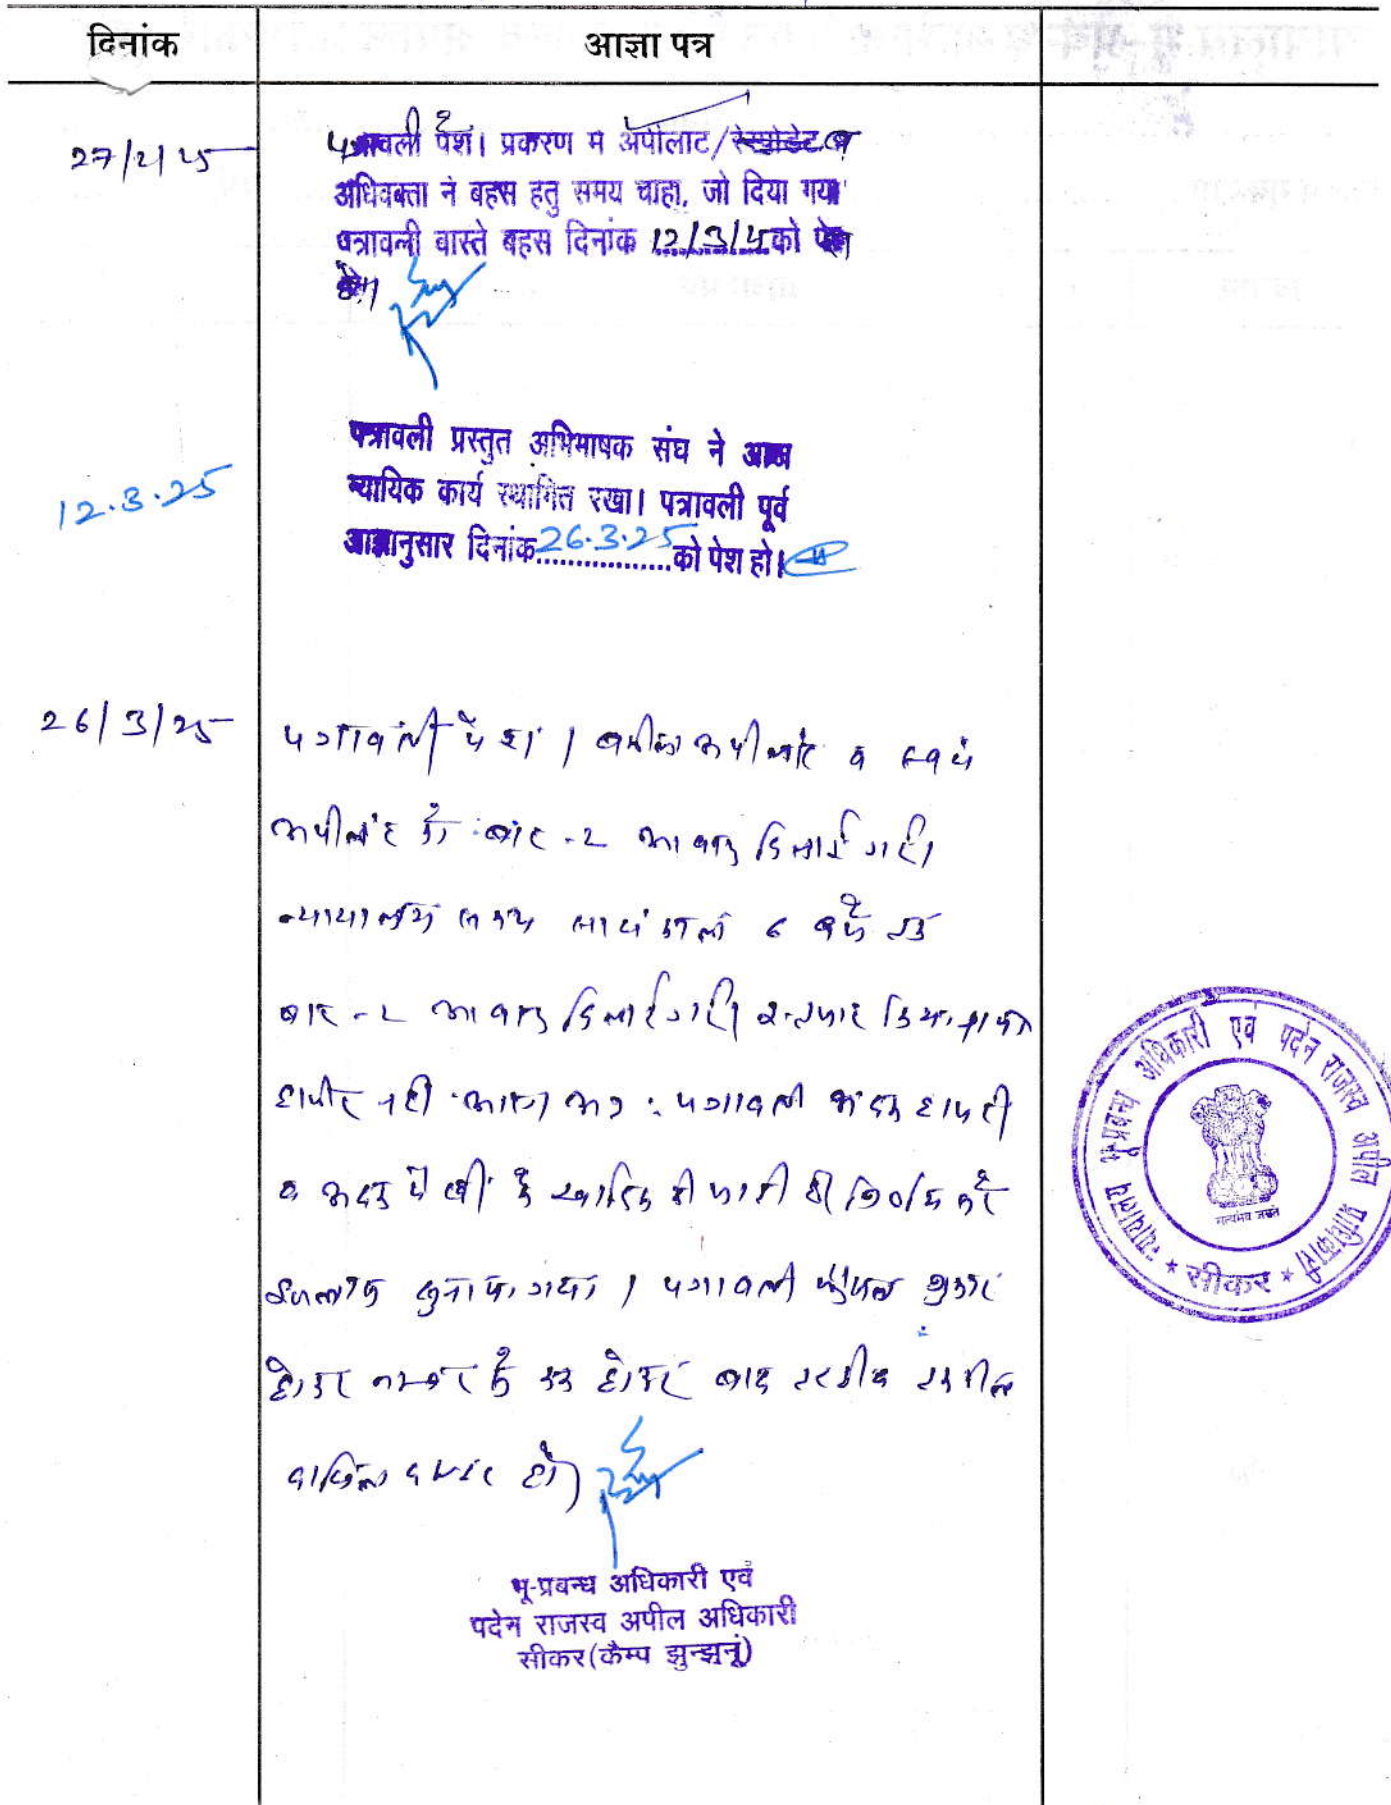 दिनांक
आज्ञा पत्र
27/2/25
पत्रावली पेश। प्रकरण में अपीलांट/रेस्पोडेंट के
अधिवक्ता ने बहस हेतु समय चाहा, जो दिया गया
पत्रावली वास्ते बहस दिनांक 12/3/25 को पेश
हो।
12.3.25
पत्रावली प्रस्तुत अभिभाषक संघ ने आज
न्यायिक कार्य स्थगित रखा। पत्रावली पूर्व
आज्ञानुसार दिनांक 26.3.25 को पेश हो।
26/3/25
पत्रावली पेश। वकील अपीलांट व स्वयं
अपीलांट को बार-2 आवाज दिलाई गई।
न्यायालय समय सायंकाल 6 बजे तक
बार-2 आवाज दिलाई गई। इन्तजार किया
हाजिर नहीं आया अतः पत्रावली अदम हाजरी
व अदम पैरवी में खारिज की जाती है। निर्णय
सुनाया गया। पत्रावली फैसल शुमार
होकर नम्बर से कम होकर बाद
दाखिल दफ्तर हो।
भू-प्रबन्ध अधिकारी एवं
पदेन राजस्व अपील अधिकारी
सीकर(कैम्प झुन्झुनूं)
न्यायालय भू-प्रबन्ध अधिकारी एवं पदेन राजस्व अपील प्राधिकारी
सत्यमेव जयते
* सीकर *